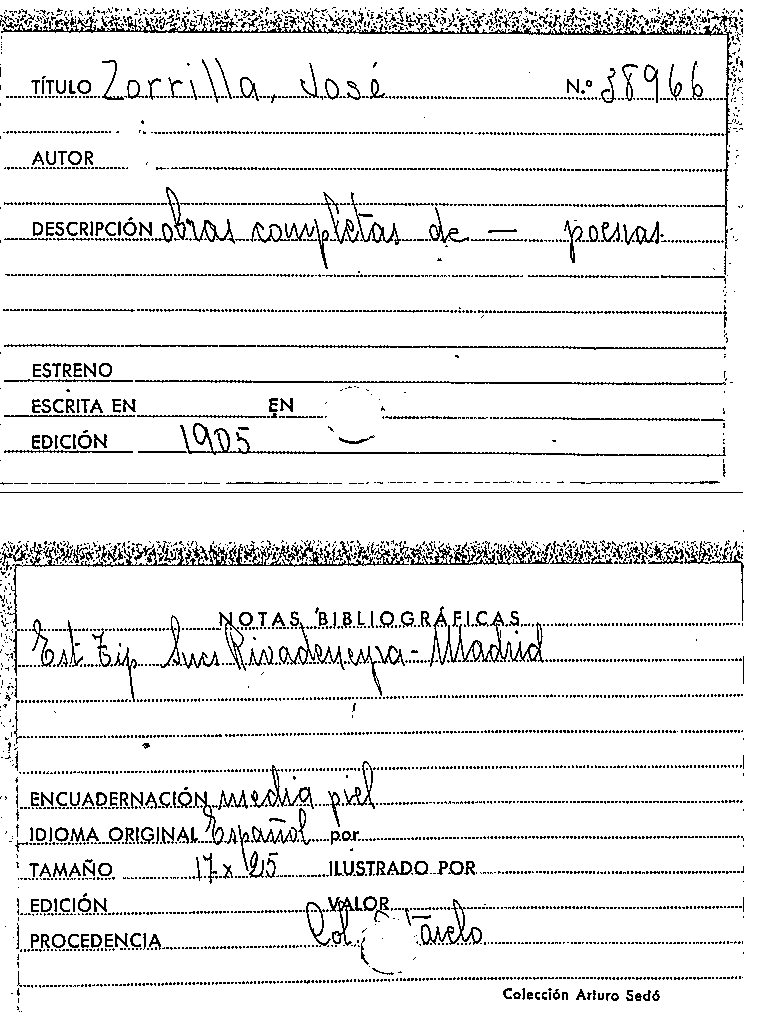 TÍTULO Zorrilla, José N.º 38966
AUTOR
DESCRIPCIÓN obras completas de — poesias
ESTRENO
ESCRITA EN EN
EDICIÓN 1905
NOTAS BIBLIOGRÁFICAS
Est Tip Sucs Rivadeneyra - Madrid
ENCUADERNACIÓN media piel
IDIOMA ORIGINAL Español por
TAMAÑO 17 x 25 ILUSTRADO POR
EDICIÓN VALOR
PROCEDENCIA Col.
Colección Arturo Sedó